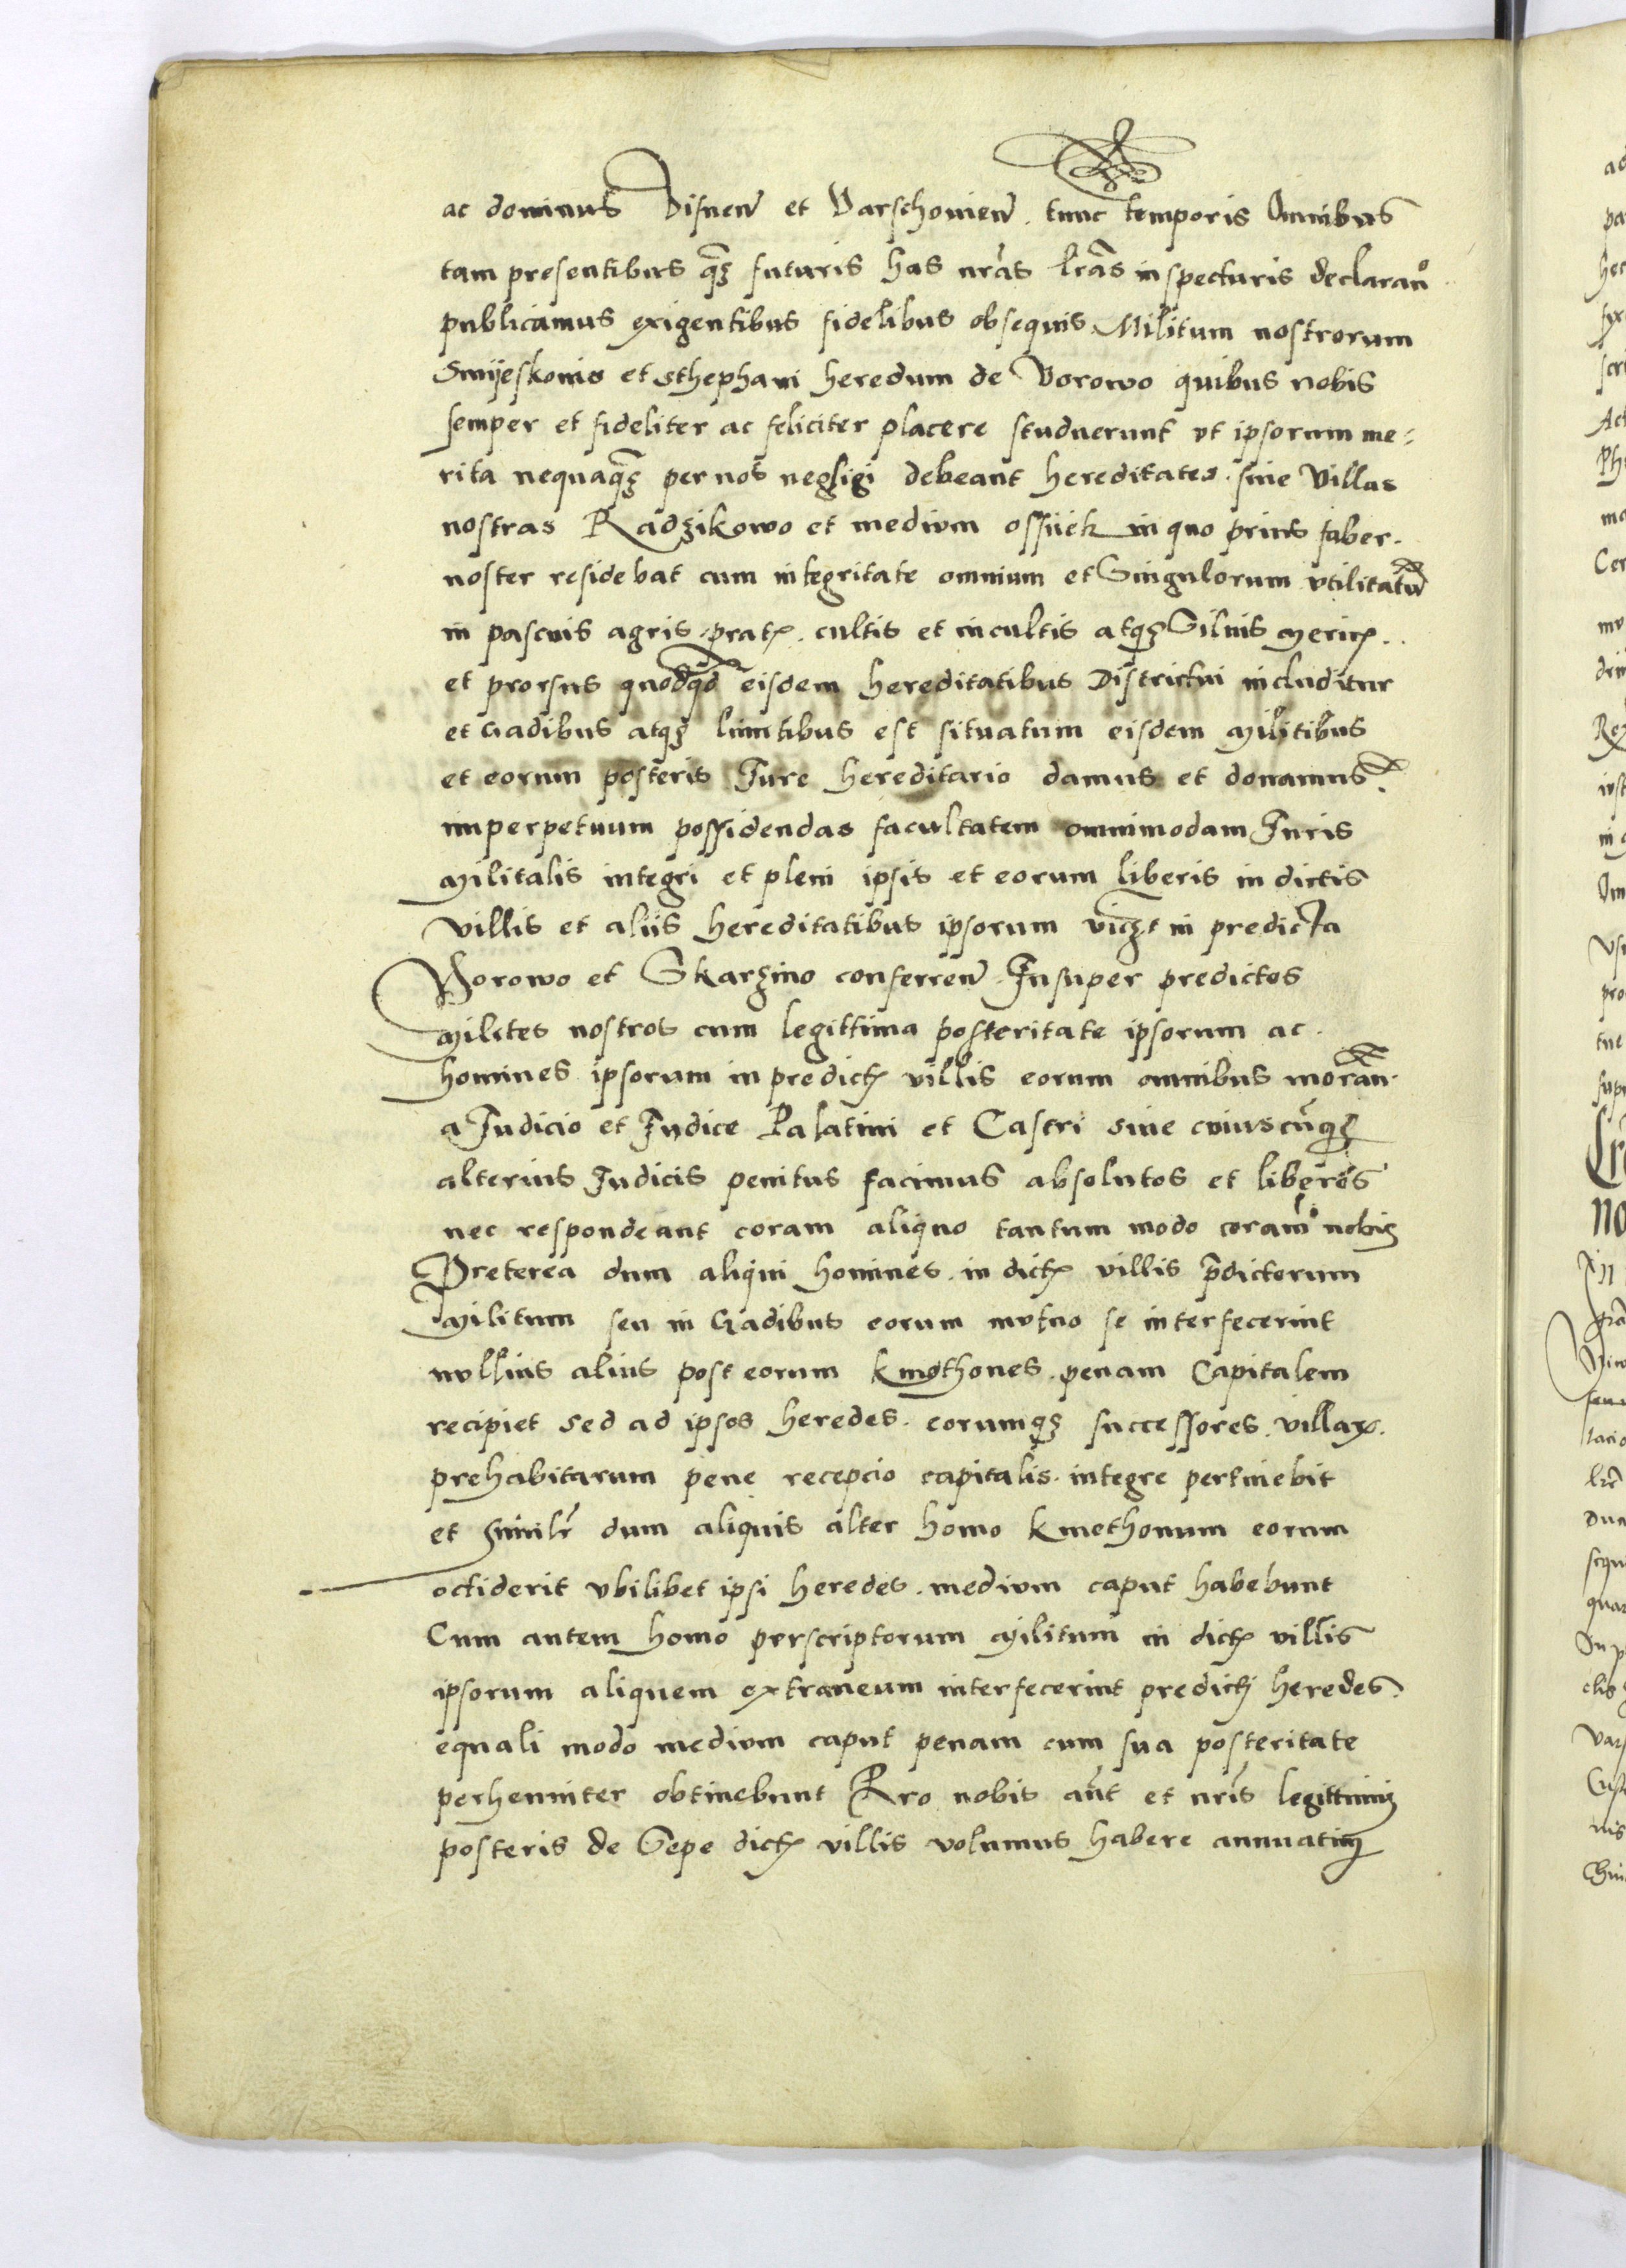 ac dominus Visnen̄ et Varschouien̄. tunc temporis Omnibus
tam presentibus q̄ꝫ futuris has nr̄as lr̄as inspecturis declaran̊
publicamus exigentibus fidelibus obsequis Militum nostrorum
et sthephani heredum de Vorowo quibus nobis
semper et fideliter ac feliciter placere studuerunt vt ipsorum me=
rita nequaq̄ꝫ per nos negligi debeant hereditates. siue Villas
nostras Radzikowo et medium ossijek in quo prius faber.
noster residebat cum integritate omnium et Singulorum vtilitatū
in pascuis agris pratꝭ. cultis et incultis atqꝫ Siluis mericꝭ..
et prorsus quodq̄d eisdem hereditatibus Districtui includitur
et Gadibus atqꝫ limitibus est situatum eisdem Militibus
et eorum posteris Jure hereditario damus et donamus.
imperpetuum possidendas facultatem omnimodam Juris
Militalis integri et pleni ipsis et eorum liberis in dictis
villis et aliis hereditatibus ipsorum vicꝫt in predicta
Vorowo et Skarzino conferren̄. Insuper predictos
Milites nostros cum legittima posteritate ipsorum ac.
homines ipsorum in predictꝭ villis eorum omnibus morān.
a Judicio et Judice Palatini et Castri siue cuiuscūqꝫ
alterius Judicis penitus facimus absolutos et liberos
nec respondeant coram aliquo tantum modo coram nobis
Preterea dum aliqui homines. in dictꝭ villis p̄dictorum
Militum seu in Gadibus eorum mutuo se interfecerint
nullius alius post eorum kmethones. penam Capitalem
recipiet sed ad ipsos heredes. eorumqꝫ successores. villaꝝ.
prehabitarum pene recepcio capitalis. integre pertinebit
et Similr̄ dum aliquis alter homo kmethonum eorum
occiderit vbilibet ipsi heredes. medium caput habebunt
Cum autem homo perscriptorum Militum in dictꝭ villis
ipsorum aliquem extraneum interfecerint predicti heredes.
equali modo medium caput penam cum sua posteritate
perhenniter obtinebunt Pro nobis aūt et nr̄is legittimis
posteris de Sepe dictꝭ villis volumus habere annuatim